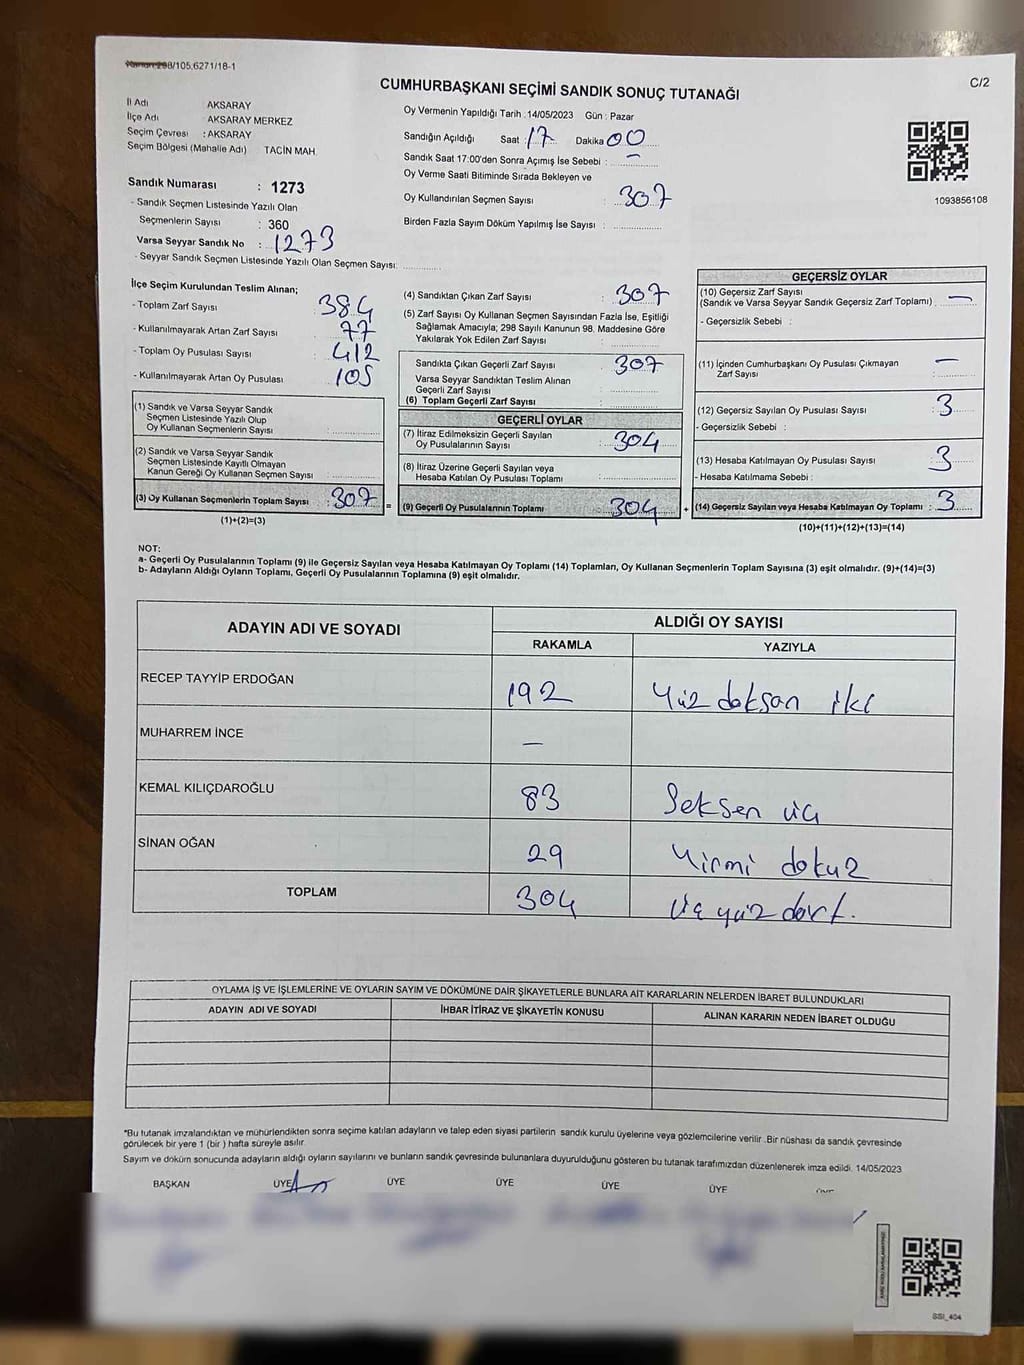 298/105.6271/18-1
C/2
CUMHURBAŞKANI SEÇİMİ SANDIK SONUÇ TUTANAĞI
İl Adı AKSARAY
İlçe Adı AKSARAY MERKEZ
Seçim Çevresi : AKSARAY
Seçim Bölgesi (Mahalle Adı) TACİN MAH.
Sandık Numarası : 1273
- Sandık Seçmen Listesinde Yazılı Olan
Seçmenlerin Sayısı : 360
Varsa Seyyar Sandık No : 1273
- Seyyar Sandık Seçmen Listesinde Yazılı Olan Seçmen Sayısı:
Oy Vermenin Yapıldığı Tarih : 14/05/2023 Gün : Pazar
Sandığın Açıldığı Saat : 17 Dakika 00
Sandık Saat 17:00'den Sonra Açımış İse Sebebi : –
Oy Verme Saati Bitiminde Sırada Bekleyen ve
Oy Kullandırılan Seçmen Sayısı : 307
Birden Fazla Sayım Döküm Yapılmış İse Sayısı :
1093856108
İlçe Seçim Kurulundan Teslim Alınan;
- Toplam Zarf Sayısı : 384
- Kullanılmayarak Artan Zarf Sayısı : 77
- Toplam Oy Pusulası Sayısı : 412
- Kullanılmayarak Artan Oy Pusulası : 105
(1) Sandık ve Varsa Seyyar Sandık
Seçmen Listesinde Yazılı Olup
Oy Kullanan Seçmenlerin Sayısı :
(2) Sandık ve Varsa Seyyar Sandık
Seçmen Listesinde Kayıtlı Olmayan
Kanun Gereği Oy Kullanan Seçmen Sayısı :
(3) Oy Kullanan Seçmenlerin Toplam Sayısı : 307 =
(1)+(2)=(3)
(4) Sandıktan Çıkan Zarf Sayısı : 307
(5) Zarf Sayısı Oy Kullanan Seçmen Sayısından Fazla İse, Eşitliği
Sağlamak Amacıyla; 298 Sayılı Kanunun 98. Maddesine Göre
Yakılarak Yok Edilen Zarf Sayısı :
Sandıkta Çıkan Geçerli Zarf Sayısı : 307
Varsa Seyyar Sandıktan Teslim Alınan
Geçerli Zarf Sayısı :
(6) Toplam Geçerli Zarf Sayısı :
GEÇERLİ OYLAR
(7) İtiraz Edilmeksizin Geçerli Sayılan
Oy Pusulalarının Sayısı : 304
(8) İtiraz Üzerine Geçerli Sayılan veya
Hesaba Katılan Oy Pusulası Toplamı :
(9) Geçerli Oy Pusulalarının Toplamı : 304 +
GEÇERSİZ OYLAR
(10) Geçersiz Zarf Sayısı
(Sandık ve Varsa Seyyar Sandık Geçersiz Zarf Toplamı) : –
- Geçersizlik Sebebi :
(11) İçinden Cumhurbaşkanı Oy Pusulası Çıkmayan
Zarf Sayısı : –
(12) Geçersiz Sayılan Oy Pusulası Sayısı : 3
- Geçersizlik Sebebi :
(13) Hesaba Katılmayan Oy Pusulası Sayısı : 3
- Hesaba Katılmama Sebebi :
(14) Geçersiz Sayılan veya Hesaba Katılmayan Oy Toplamı : 3
(10)+(11)+(12)+(13)=(14)
NOT:
a- Geçerli Oy Pusulalarının Toplamı (9) ile Geçersiz Sayılan veya Hesaba Katılmayan Oy Toplamı (14) Toplamları, Oy Kullanan Seçmenlerin Toplam Sayısına (3) eşit olmalıdır. (9)+(14)=(3)
b- Adayların Aldığı Oyların Toplamı, Geçerli Oy Pusulalarının Toplamına (9) eşit olmalıdır.
ADAYIN ADI VE SOYADI
ALDIĞI OY SAYISI
RAKAMLA YAZIYLA
RECEP TAYYİP ERDOĞAN 192 Yüz doksan iki
MUHARREM İNCE –
KEMAL KILIÇDAROĞLU 83 Seksen üç
SİNAN OĞAN 29 Yirmi dokuz
TOPLAM 304 Üç yüz dört.
OYLAMA İŞ VE İŞLEMLERİNE VE OYLARIN SAYIM VE DÖKÜMÜNE DAİR ŞİKAYETLERLE BUNLARA AİT KARARLARIN NELERDEN İBARET BULUNDUKLARI
ADAYIN ADI VE SOYADI İHBAR İTİRAZ VE ŞİKAYETİN KONUSU ALINAN KARARIN NEDEN İBARET OLDUĞU
*Bu tutanak imzalandıktan ve mühürlendikten sonra seçime katılan adayların ve talep eden siyasi partilerin sandık kurulu üyelerine veya gözlemcilerine verilir .Bir nüshası da sandık çevresinde
görülecek bir yere 1 (bir ) hafta süreyle asılır.
Sayım ve döküm sonucunda adayların aldığı oyların sayılarını ve bunların sandık çevresinde bulunanlara duyurulduğunu gösteren bu tutanak tarafımızdan düzenlenerek imza edildi. 14/05/2023
BAŞKAN ÜYE ÜYE ÜYE ÜYE ÜYE
SSI_404